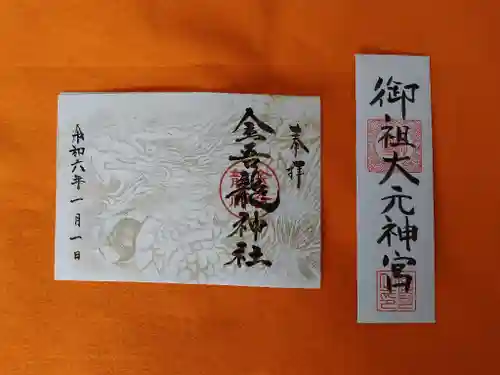 奉拝
金吾龍神社
令和六年一月一日
御祖大元神宮